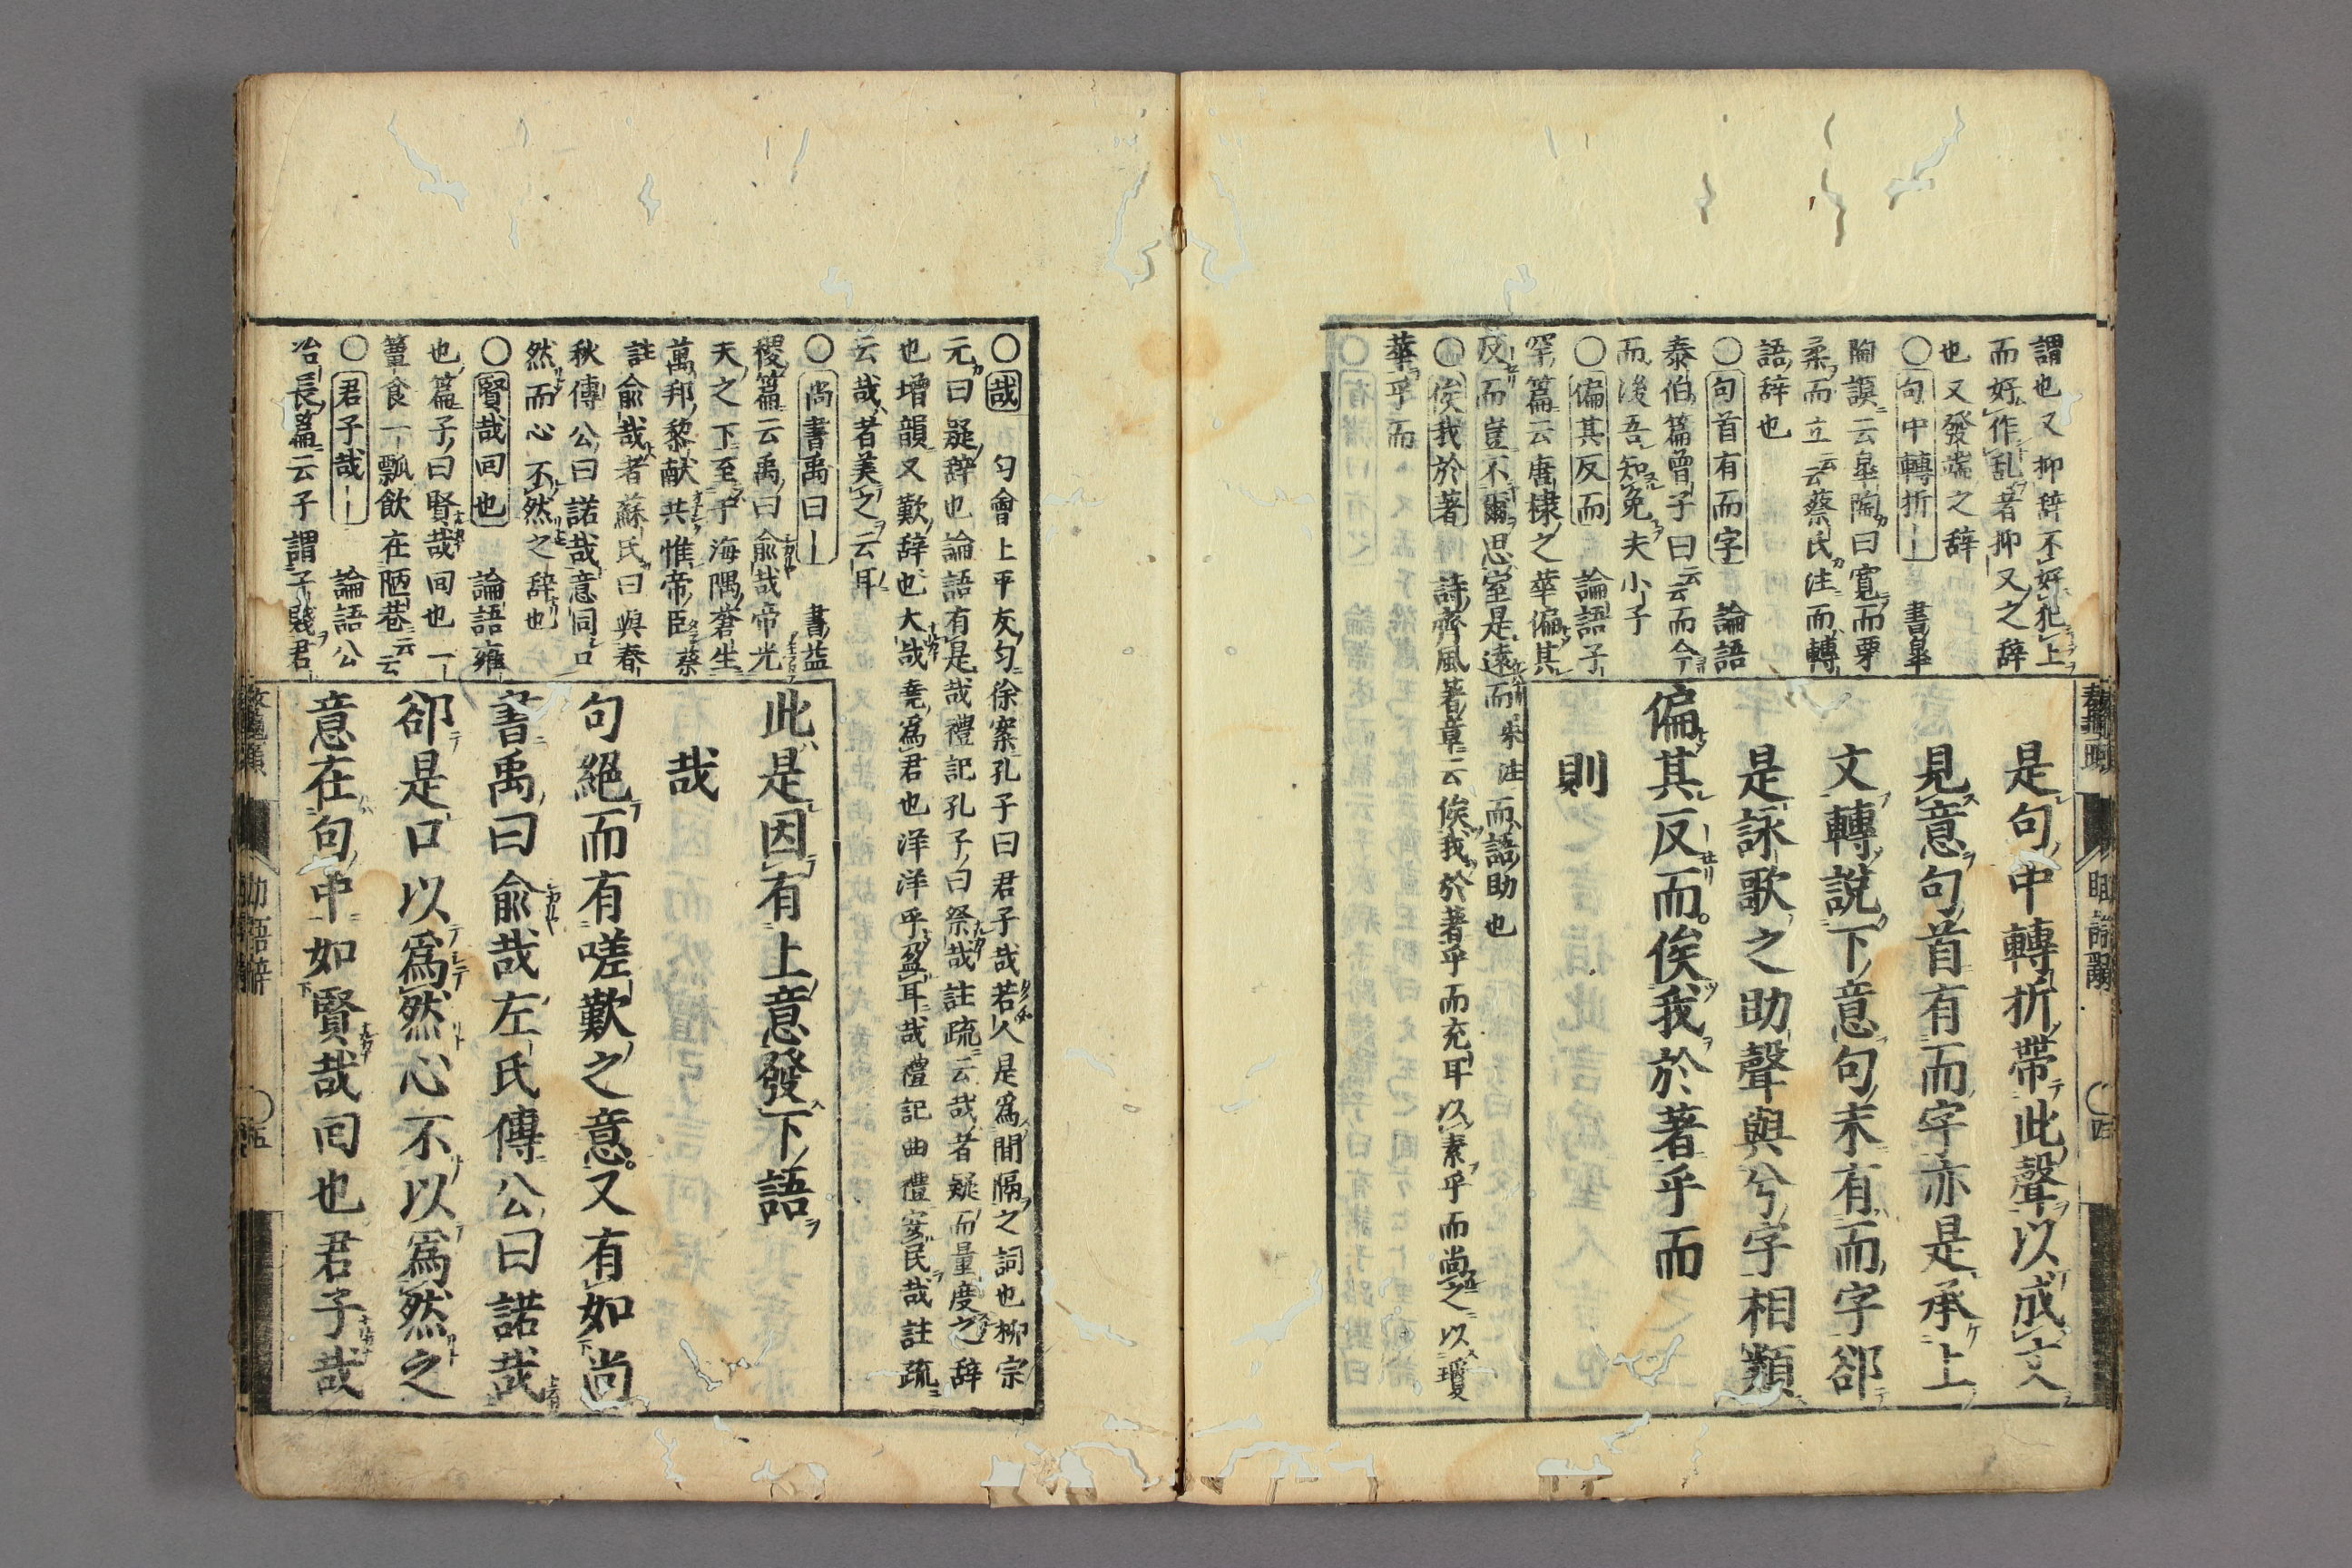 謂也又抑辞不好犯上
而好作乱者抑又之辞
也又發端之辞
〇句中轉折｜　書皐
陶謨云皐陶曰寛而栗
柔而立云蔡氏注而轉
語辞也
〇句首有而字　論語
泰伯篇曾子曰云云而今
而後吾知免夫小子
〇偏其反而　論語子
罕篇云唐棣之華偏其
反而豈不爾思室是遠而朱注而語助也
〇俟我於著　詩齊風著章云俟我於著乎而充耳以素乎而尚之以瓊
華乎而
是句中轉折帶此聲以成文
見意句首有而字亦是承上
文轉說下意句末有而字卻
是詠歌之助聲與兮字相類
偏其反而俟我於著乎而
則
助語辭
〇四
〇哉　勻會上平灰勻徐案孔子曰君子哉若人是爲間隔之詞也柳宗
元曰疑辞也論語有是哉禮記孔子曰祭哉註疏云哉者疑而量度之辞
也增韻又歎辞也大哉堯爲君也洋洋乎盈耳哉禮記曲禮安民哉註疏
云哉者美之云耳
〇尚書禹曰｜　書益
稷篇云禹曰俞哉帝光
天之下至于海隅蒼生
萬邦黎献共惟帝臣蔡
註俞哉者蘇氏曰與春
秋傳公曰諾哉意同口
然而心不然之辞也
〇賢哉回也　論語雍
也篇子曰賢哉回也一
簞食一瓢飲在陋巷云云
〇君子哉｜　論語公
冶長篇云子謂子賤君
此是因有上意發下語
哉
句絕而有嗟歎之意又有如尚
書禹曰俞哉左氏傳公曰諾哉
卻是口以爲然心不以爲然之
意在句中如賢哉回也君子哉
助語辭
〇五